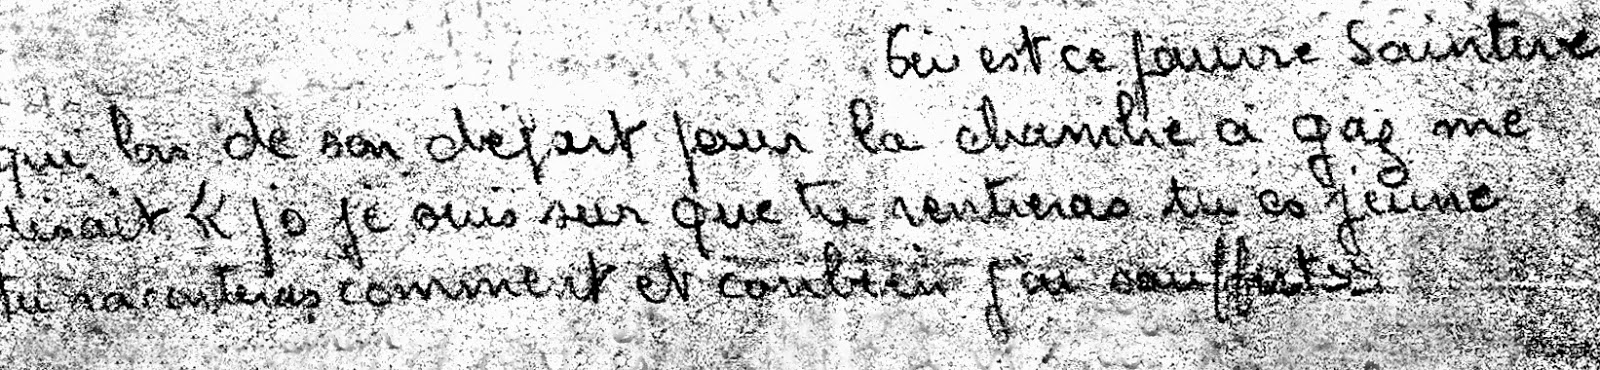 est ce pauvre Sainteve
qui lors de son depart pour la chambre a gaz me
disait « jo je suis sur que tu rentreras tu es jeune
tu raconteras comment et combien j'ai souffert »